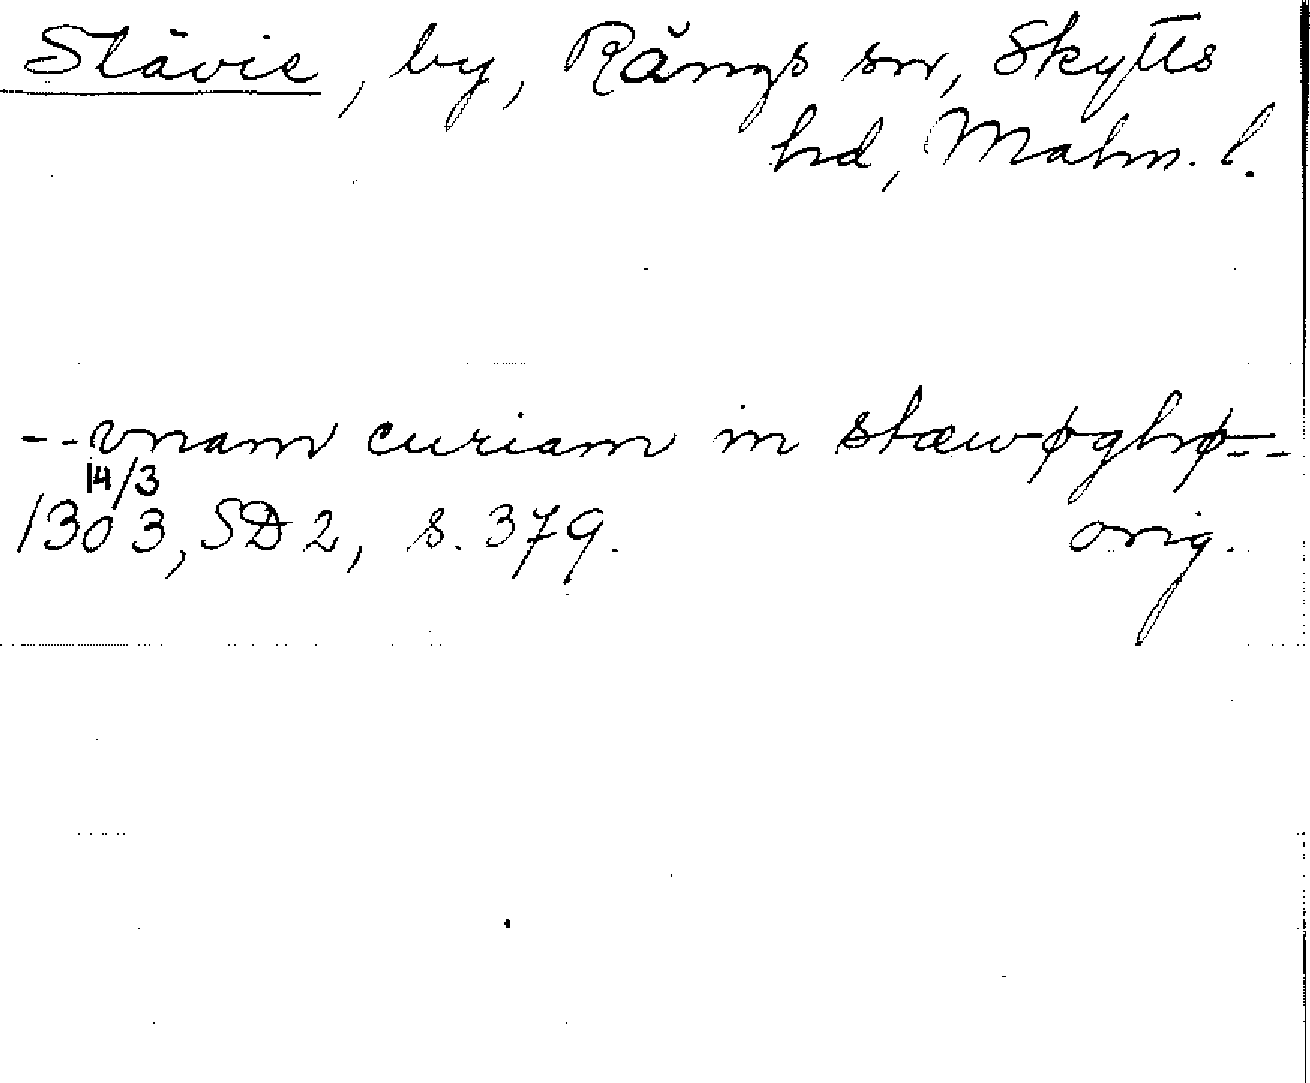 Stävie, by, Rängs sn, Skytts
hd, Malm. l.
--vnam curiam in stæwøghø--
14/3
1303, SD 2, s. 379. orig.